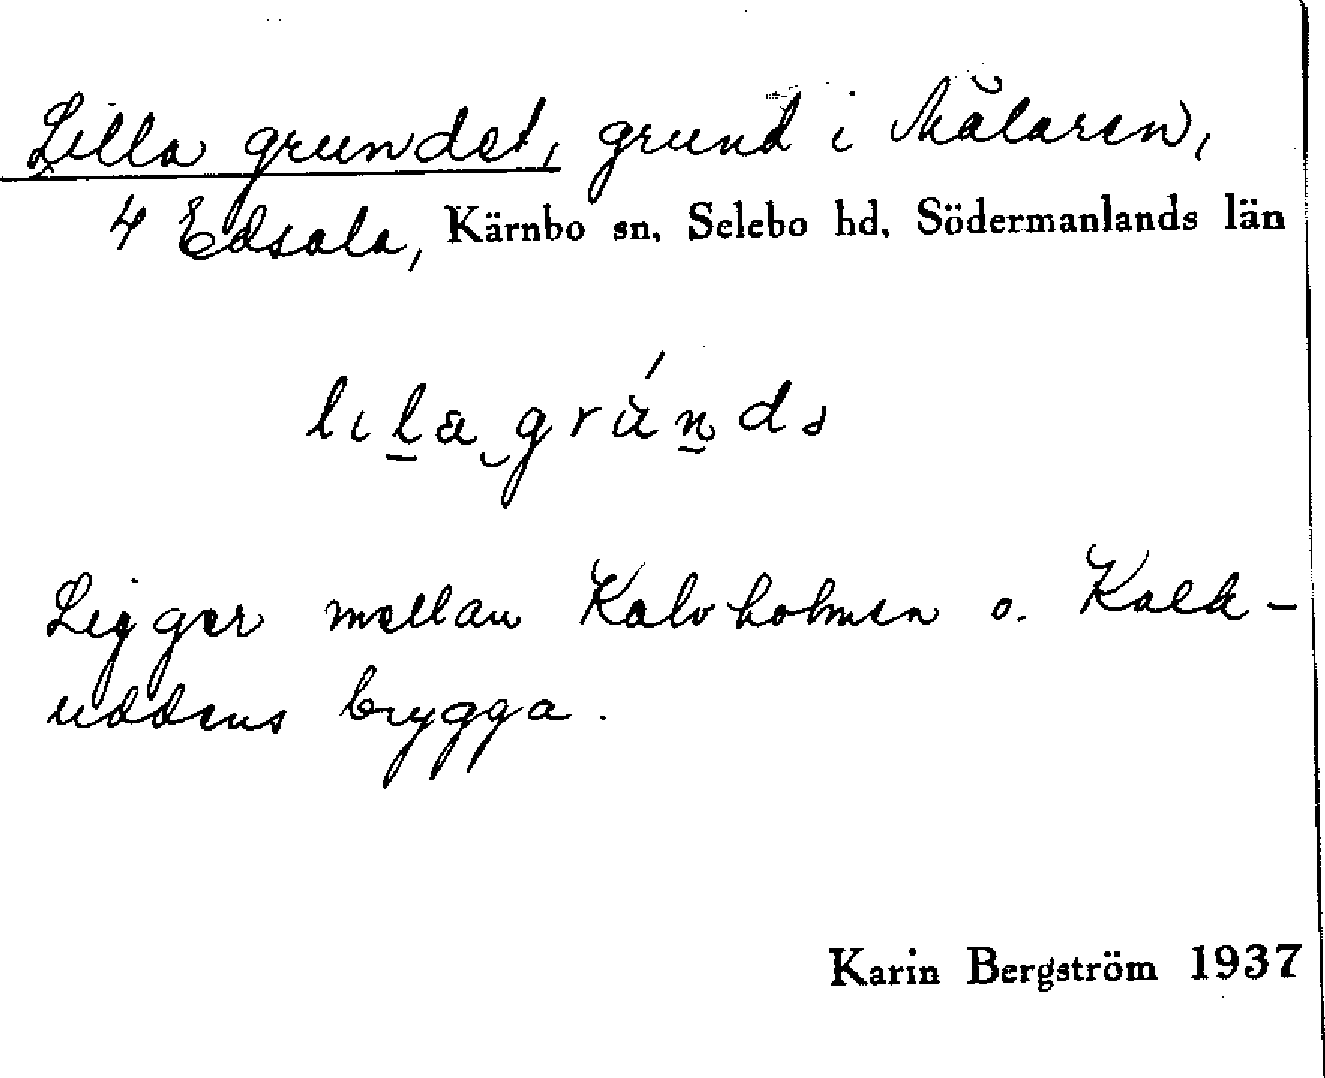 Lilla grundet, grund i Mälaren,
4 Edsala, Kärnbo sn, Selebo hd, Södermanlands län
Ligger mellan Kalvholmen o. Kalk-
uddens brygga.
Karin Bergström 1937